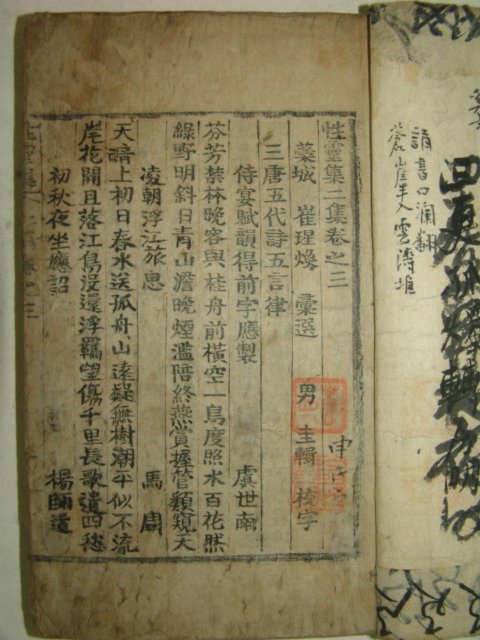 誦書口瀾翻
性靈集二集卷之三
蘂城 崔瑆煥 彙選 男 圭輯 校字
三唐五代詩五言律
侍宴賦韻得前字應製 虞世南
芬芳禁林晚容與桂舟前橫空一鳥度照水百花然
綠野明斜日青山澹晚煙濫陪終燕賞握管類窺天
凌朝浮江旅思 馬周
天晴上初日春水送孤舟山遠疑無樹潮平似不流
岸花開且落江鳥沒還浮羈望傷千里長歌遣四愁
初秋夜坐應詔 楊師道